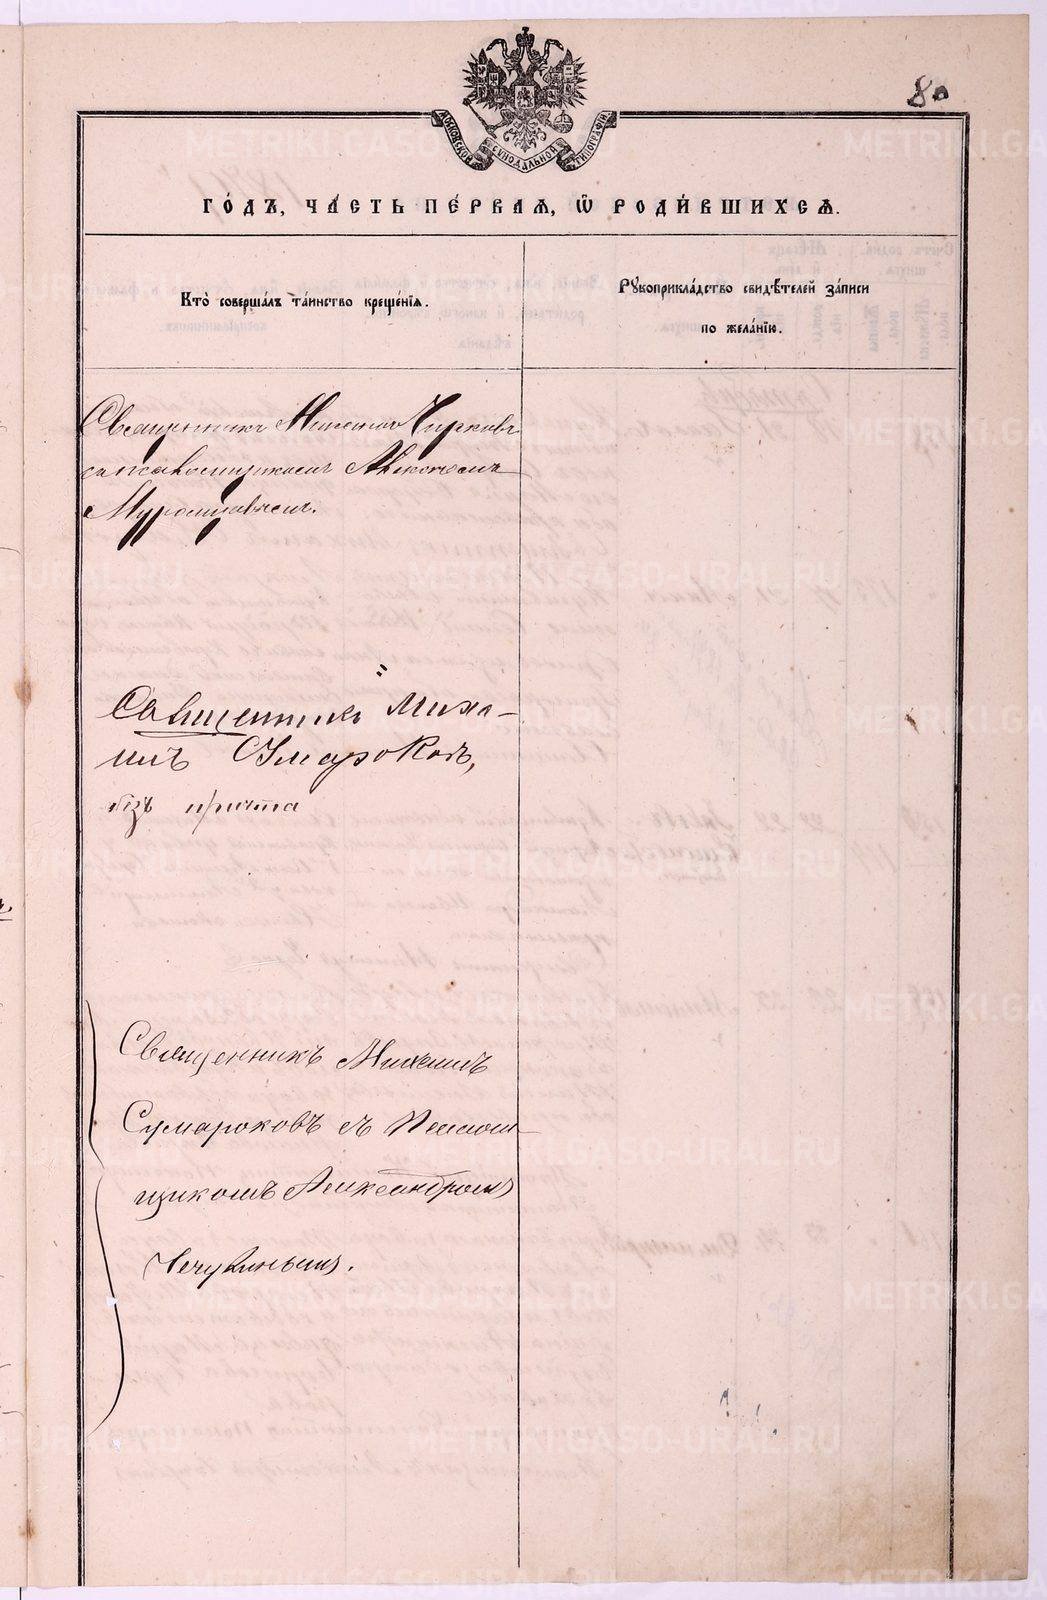 80
МОСКОВСКОЙ СѴНОДАЛЬНОЙ ТИПОГРАФІИ
ГО́ДЪ, ЧА́СТЬ ПЕ́РВАѦ, Ѡ҆ РОДИ́ВШИХСѦ.
Кто̀ соверша́лъ та́инство креще́нїѧ.
Рꙋкоприкла́дство свидѣ́телей за́писи
по жела́нїю.
Священникъ Чирковъ
Священникъ Миха-
илъ Сумароковъ,
безъ причта
Священникъ Михаилъ
Сумароковъ съ Псалом-
щикомъ Александромъ
Чечулинымъ.
METRIKI.GASO-URAL.RU